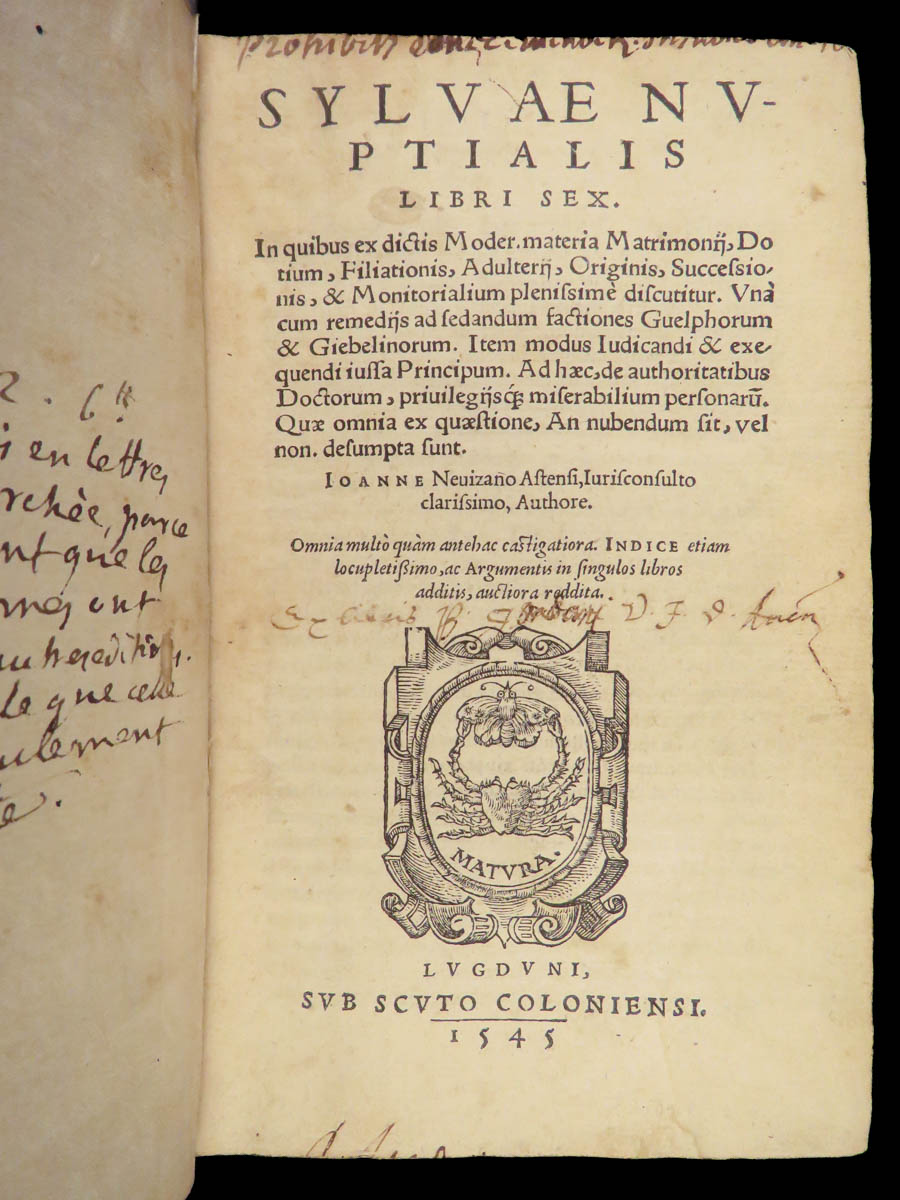 Prohibitus
SYLVAE NV-
PTIALIS
LIBRI SEX.
In quibus ex dictis Moder. materia Matrimonij, Do
tium, Filiationis, Adulterij, Originis, Successio-
nis, & Monitorialium plenissimè discutitur. Vnà
cum remedijs ad sedandum factiones Guelphorum
& Giebelinorum. Item modus Iudicandi & exe-
quendi iussa Principum. Ad hæc, de authoritatibus
Doctorum, priuilegijsq́; miserabilium personarū.
Quæ omnia ex quæstione, An nubendum sit, vel
non. desumpta sunt.
IOANNE Neuizano Astensi, Iurisconsulto
clarissimo, Authore.
Omnia multò quàm antehac castigatiora. INDICE etiam
locupletissimo, ac Argumentis in singulos libros
additis, auctiora reddita.
Ex libris P. V. J. D.
MATVRA.
LVGDVNI,
SVB SCVTO COLONIENSI.
1545
en lettres
parce
que les
ont
que celle